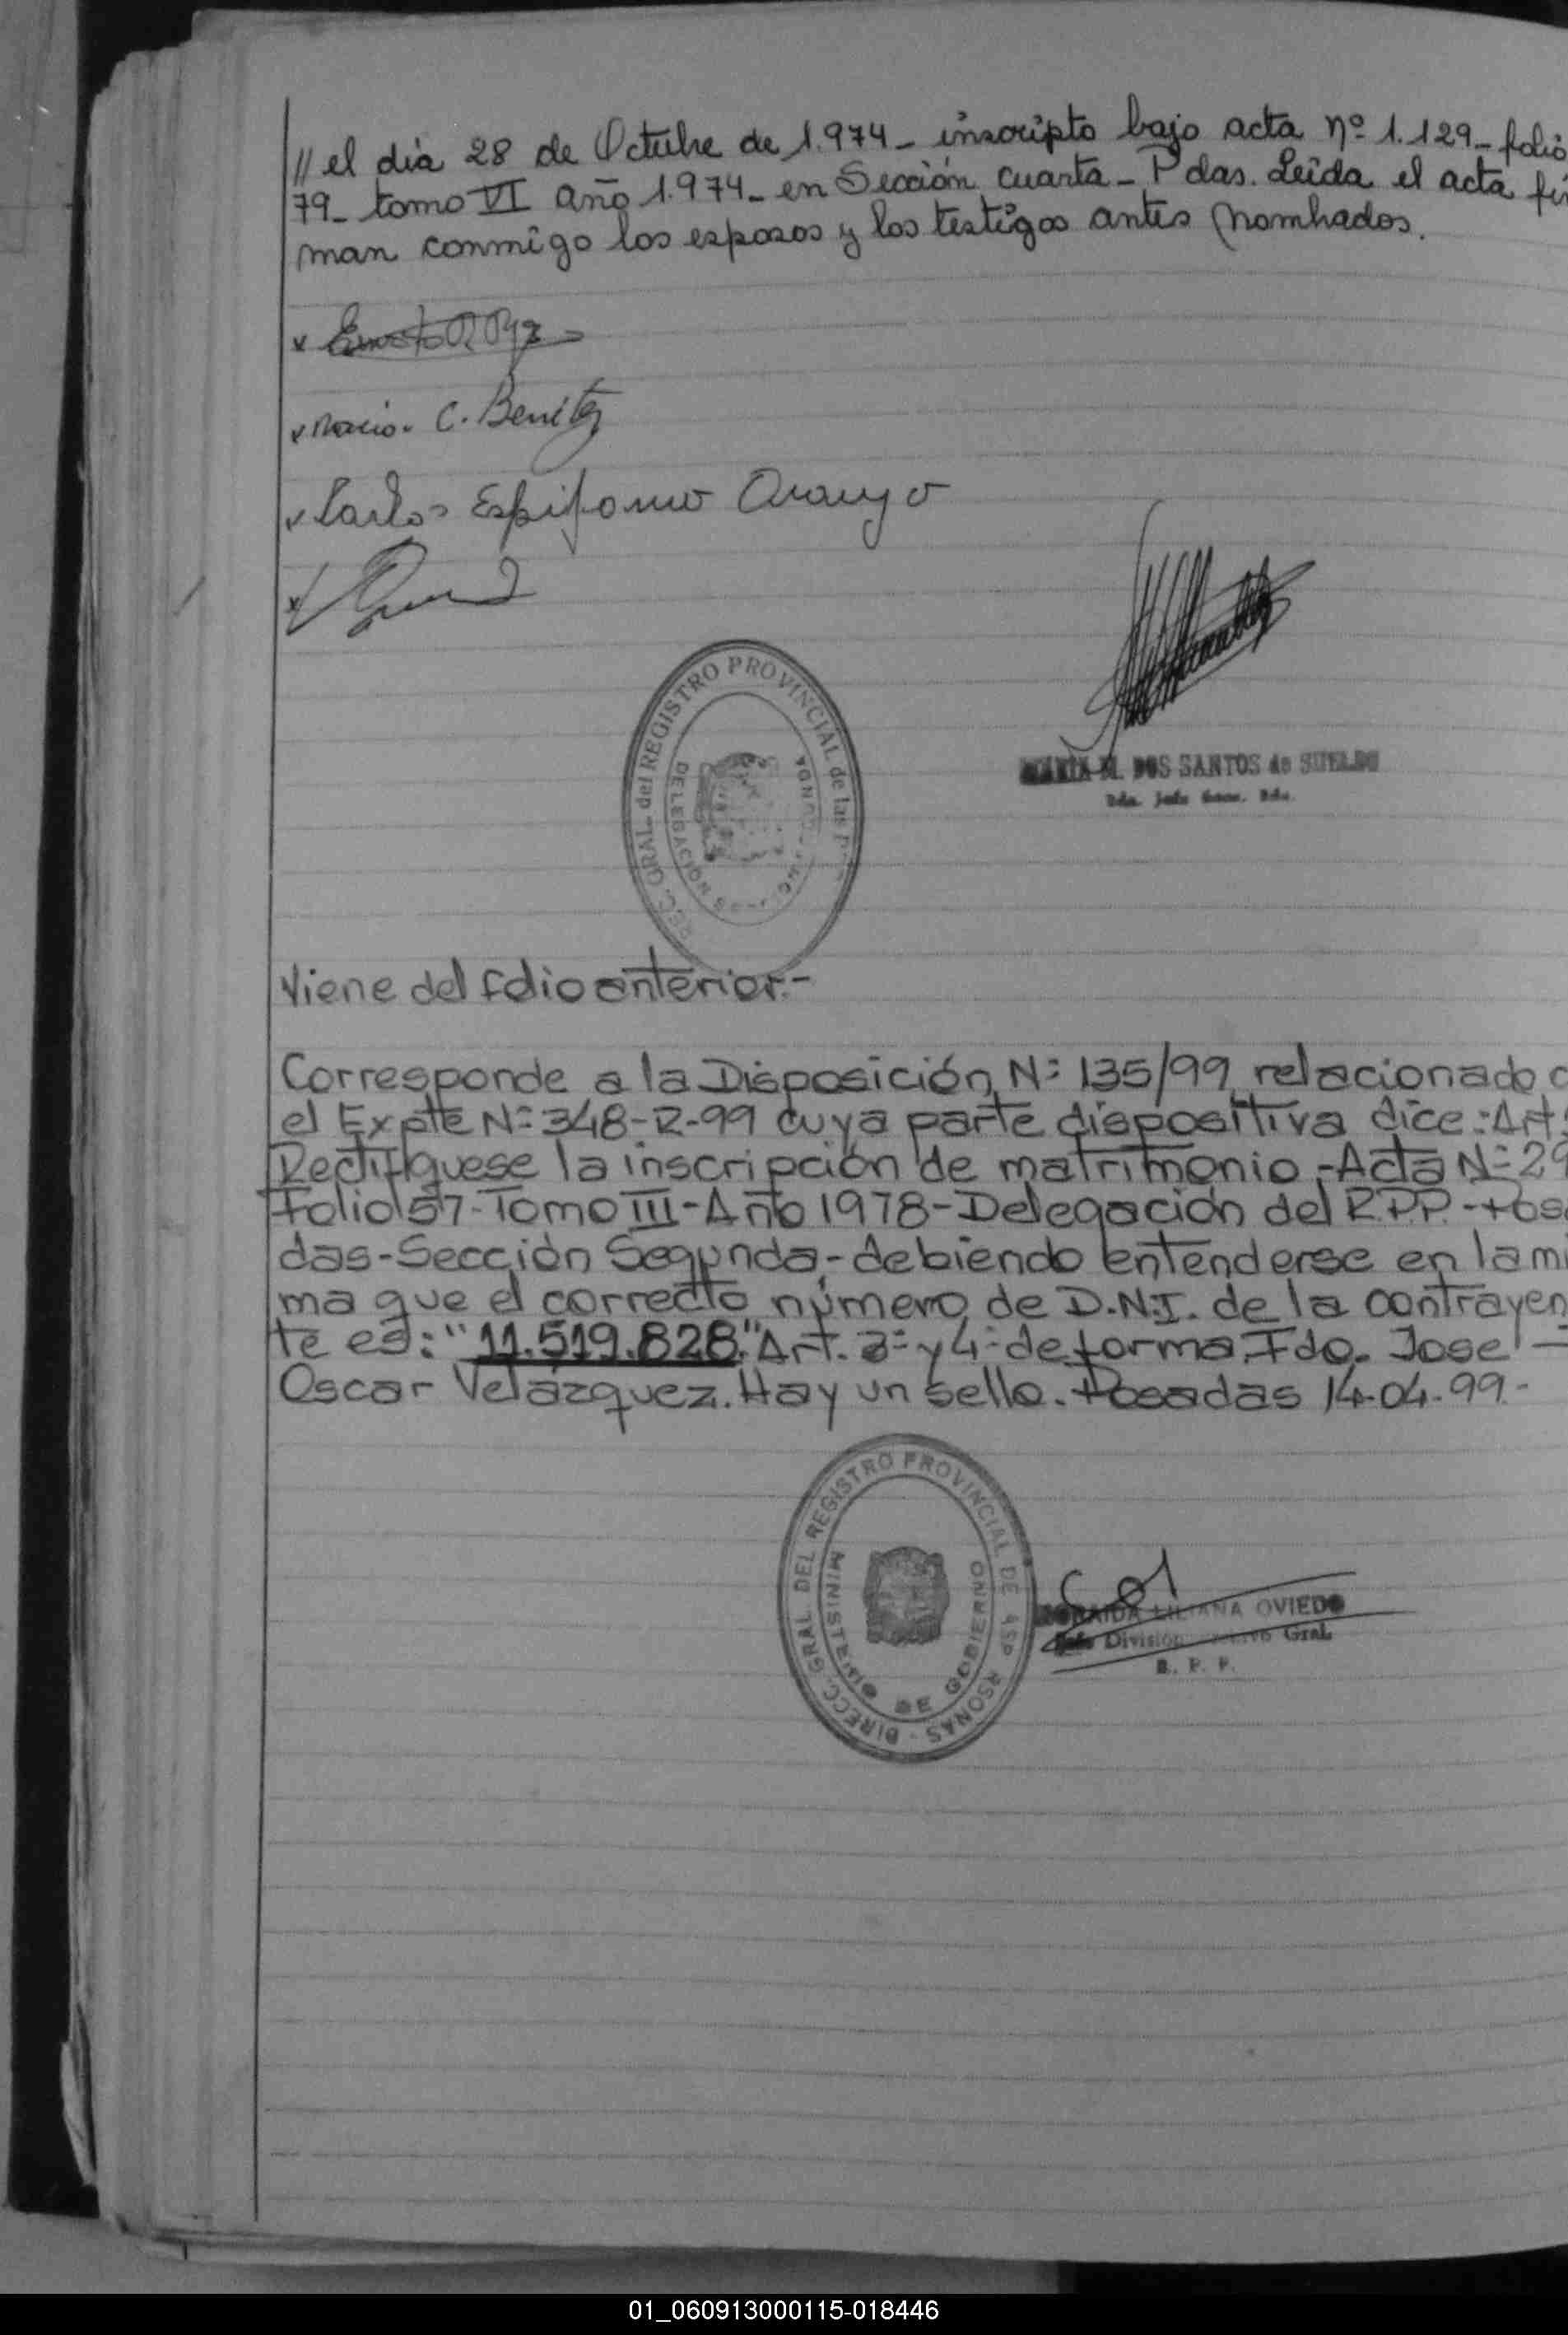 // el día 28 de Octubre de 1.974_ inscripto bajo acta nº 1.129_ folio
79_ tomo VI año 1.974_ en Sección cuarta_ Pdas. Leída el acta fir
man conmigo los esposos y los testigos antes nombrados.
x
x Maria. C. Benitez
x Carlos Epifanio Araujo
x
REGISTRO PROVINCIAL de las
GRAL. del
DELEGACION
MARIA M. DOS SANTOS de SUELDO
Viene del folio anterior.-
Corresponde a la Disposición Nº 135/99 relacionado c
el Expte Nº 348-R-99 cuya parte dispositiva dice: Art
Rectifíquese la inscripción de matrimonio -Acta Nº 29
Folio 57-Tomo III-Año 1978-Delegación del R.P.P.-Posa
das-Sección Segunda,-debiendo entenderse en la mi
ma que el correcto número de D.N.I. de la contrayen
te es: "11.519.828." Art. 3º y 4º de forma. Fdo. Jose —
Oscar Velázquez. Hay un sello. Posadas 14-04-99.-
DIRECC. GRAL. DEL REGISTRO PROVINCIAL DE
MINISTERIO DE GOBIERNO
LILIANA OVIEDO
Jefe División Gral.
R. P. P.
01_060913000115-018446